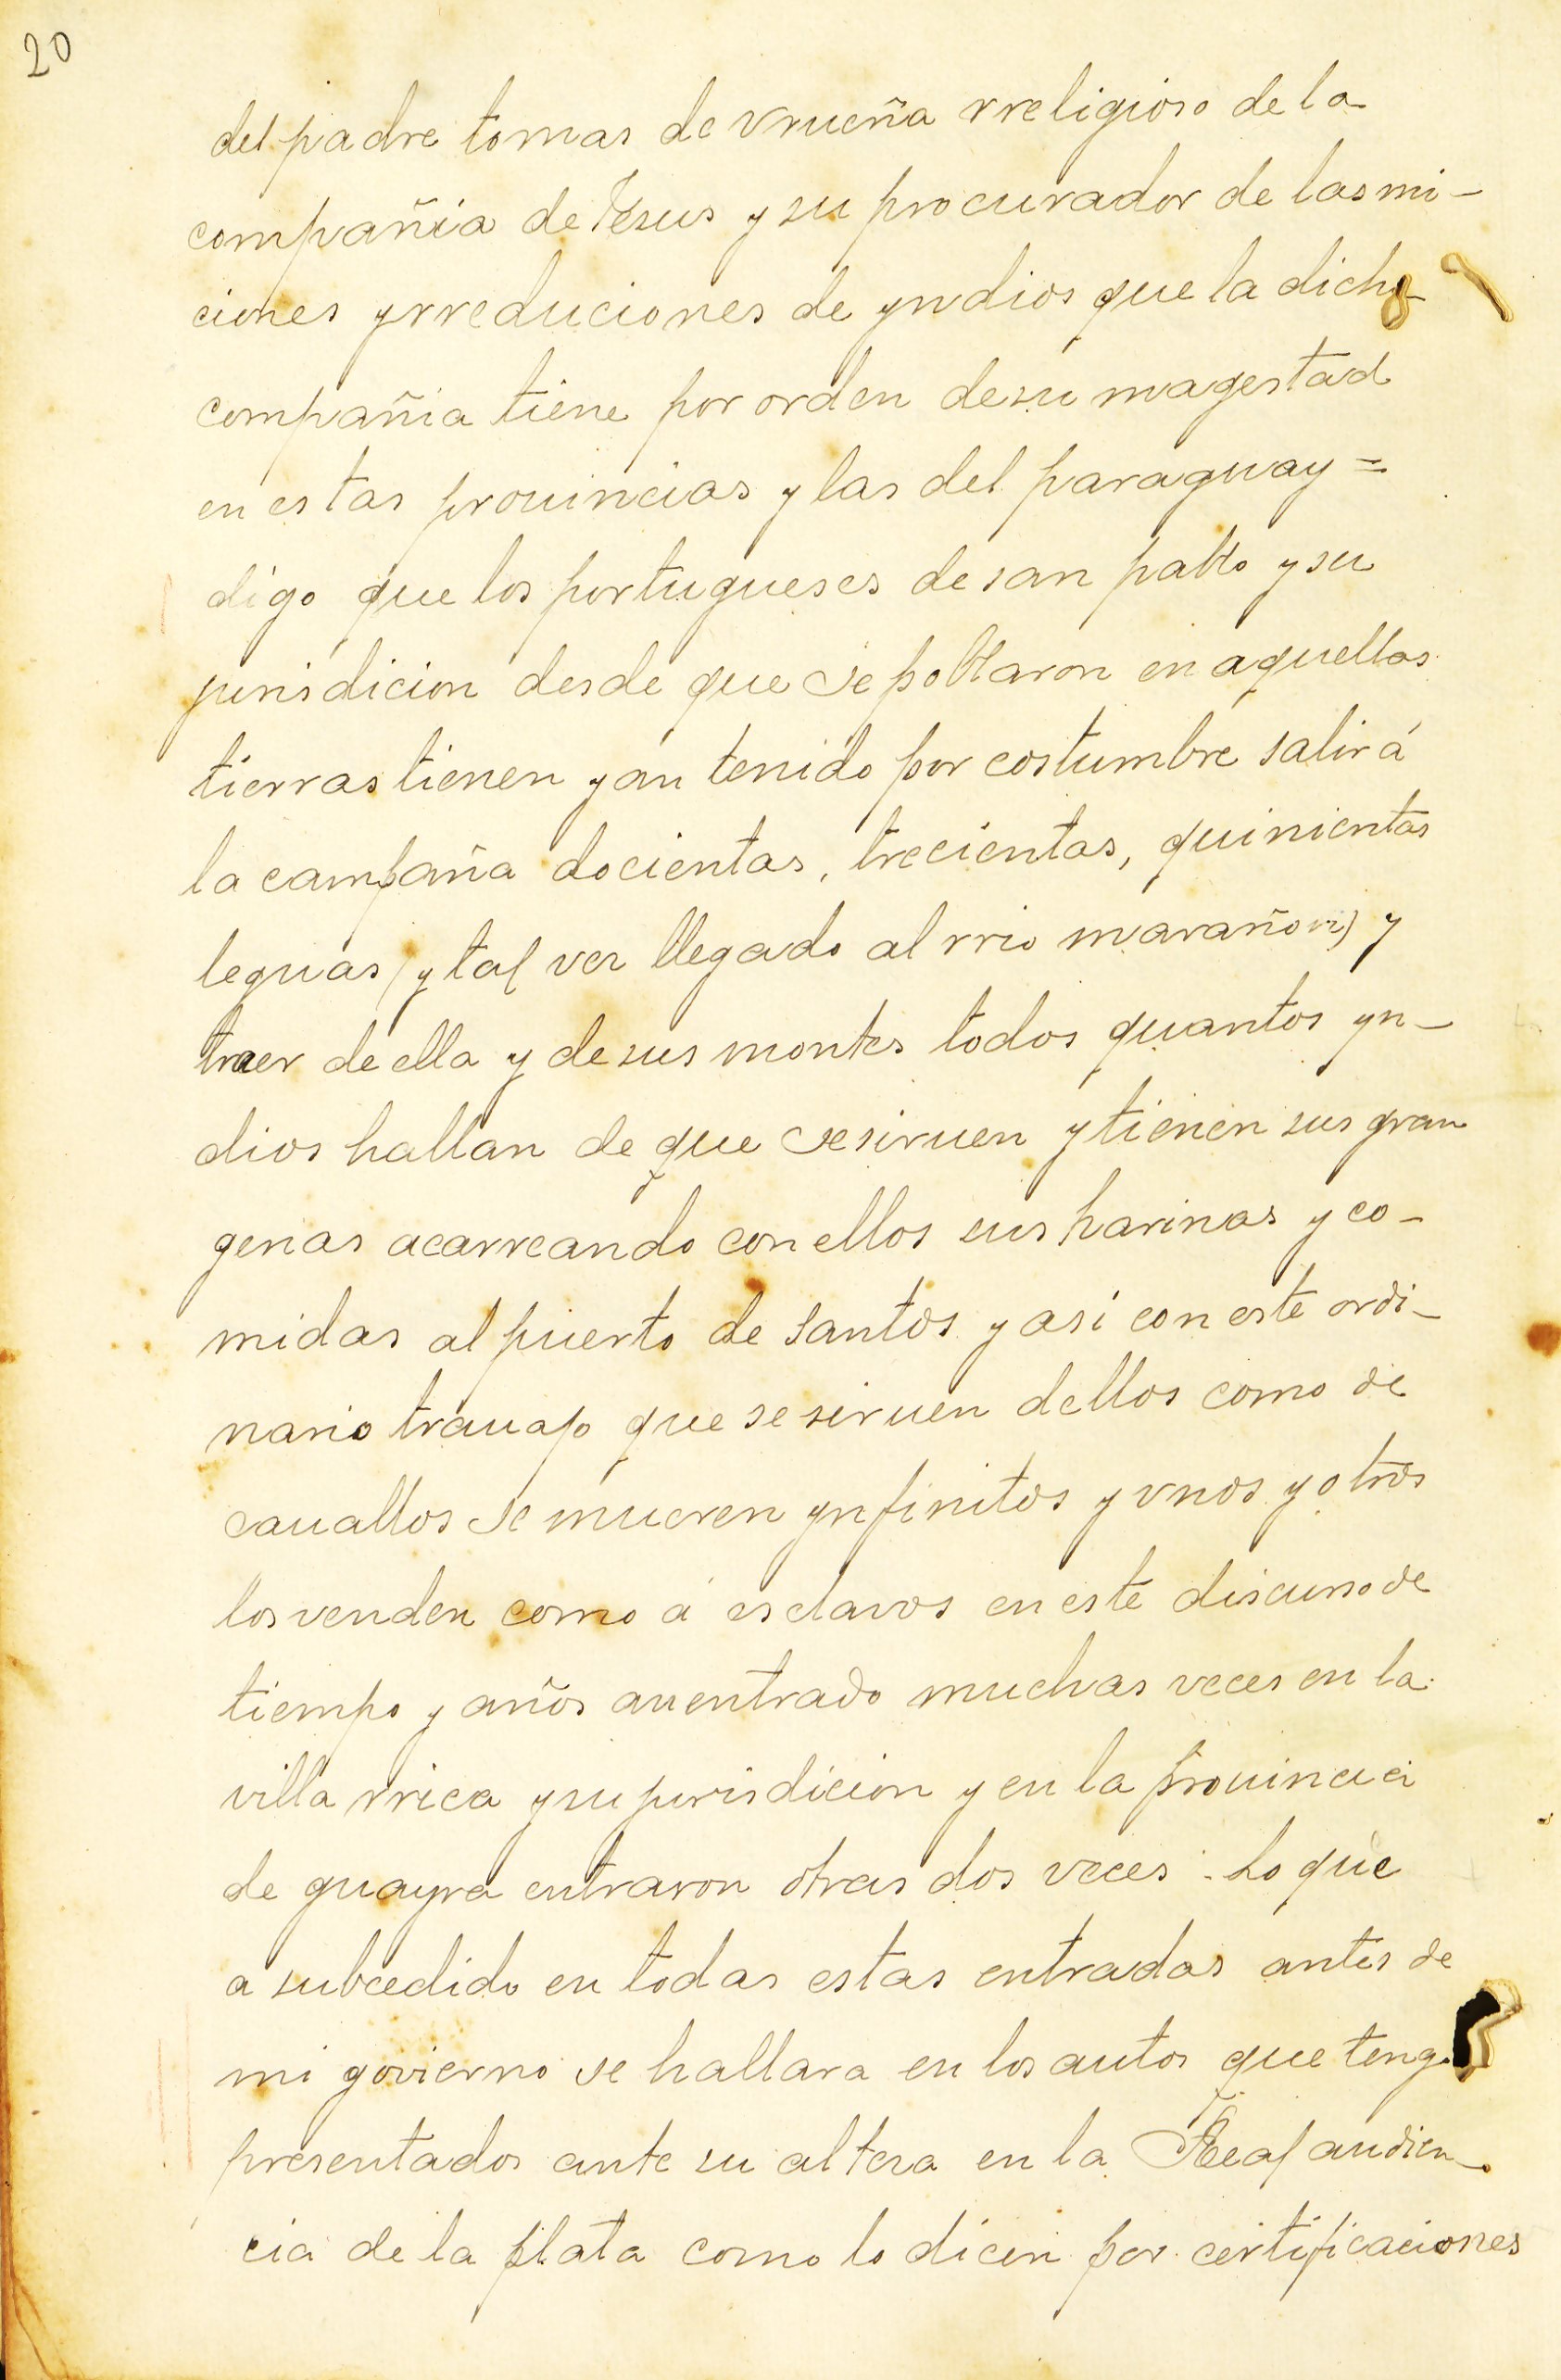 20
del padre tomas de vrueña rreligioso de la
compañia de Jesus y su procurador de las mi-
ciones y rreduciones de yndios que la dicha
compañia tiene por orden de su magestad
en estas prouincias y las del paraguay =
digo que los portugueses de san pablo y su
jurisdicion desde que se poblaron en aquellas
tierras tienen y an tenido por costumbre salir á
la campaña docientas, trecientas, quinientas
leguas (y tal vez llegado al rrio marañon) y
traer de ella y de sus montes todos quantos yn-
dios hallan de que se siruen y tienen sus gran
gerias acarreando con ellos sus harinas y co-
midas al puerto de Santos y asi con este ordi-
nario trauajo que se siruen dellos como de
cauallos se mueren ynfinitos y vnos y otros
los venden como á esclavos en este discurso de
tiempo y años an entrado muchas veces en la
villa rrica y su jurisdicion y en la prouincia
de guayra entraron otras dos veces. Lo que
a subcedido en todas estas entradas antes de
mi govierno se hallara en los autos que tengo
presentados ante su alteza en la Real audien-
cia de la plata como lo dicen por certificaciones